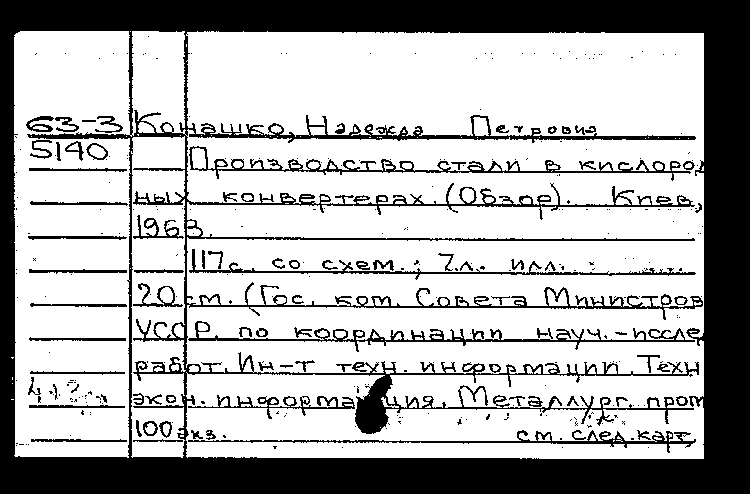 63-3 Конашко, Надежда Петровна
5140 Производство стали в кислород
ных конвертерах. (Обзор). Киев,
1963.
117с. со схем.; 2л. илл.
20см. (Гос. ком. Совета Министров
УССР. по координации науч.-иссле
работ. Ин-т техн. информации. Техн
экон. информация. Металлург. пром
100экз. см. след.карт.